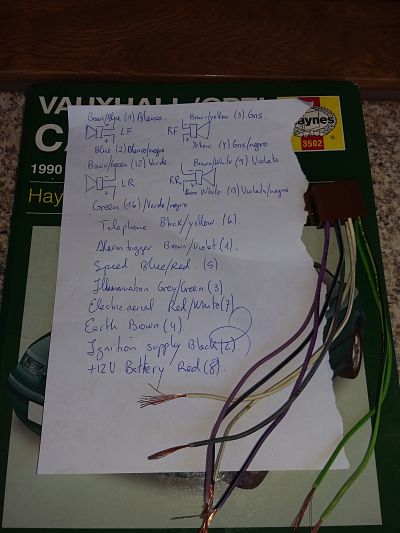 VAUXHALL/OPEL
CA
1990
Hay
Haynes
3502
Brown/Blue (1) Blanco
Brown/yellow (3) Gris
LF
RF
Blue (2) Blanco/negro
Yellow (4) Gris/negro
Brown/Green (12) Verde
Brown/White (9) Violeta
LR
RR
White (13) Violeta/negro
Green (16) Verde/negro
Telephone Black/yellow (6).
Alarm trigger Brown/Violet (1).
Speed Blue/Red. (5).
Illumination Grey/Green (3)
Electric aerial Red/White (7)
Earth Brown (4).
Ignition supply Black (2)
+12V Battery Red (8).